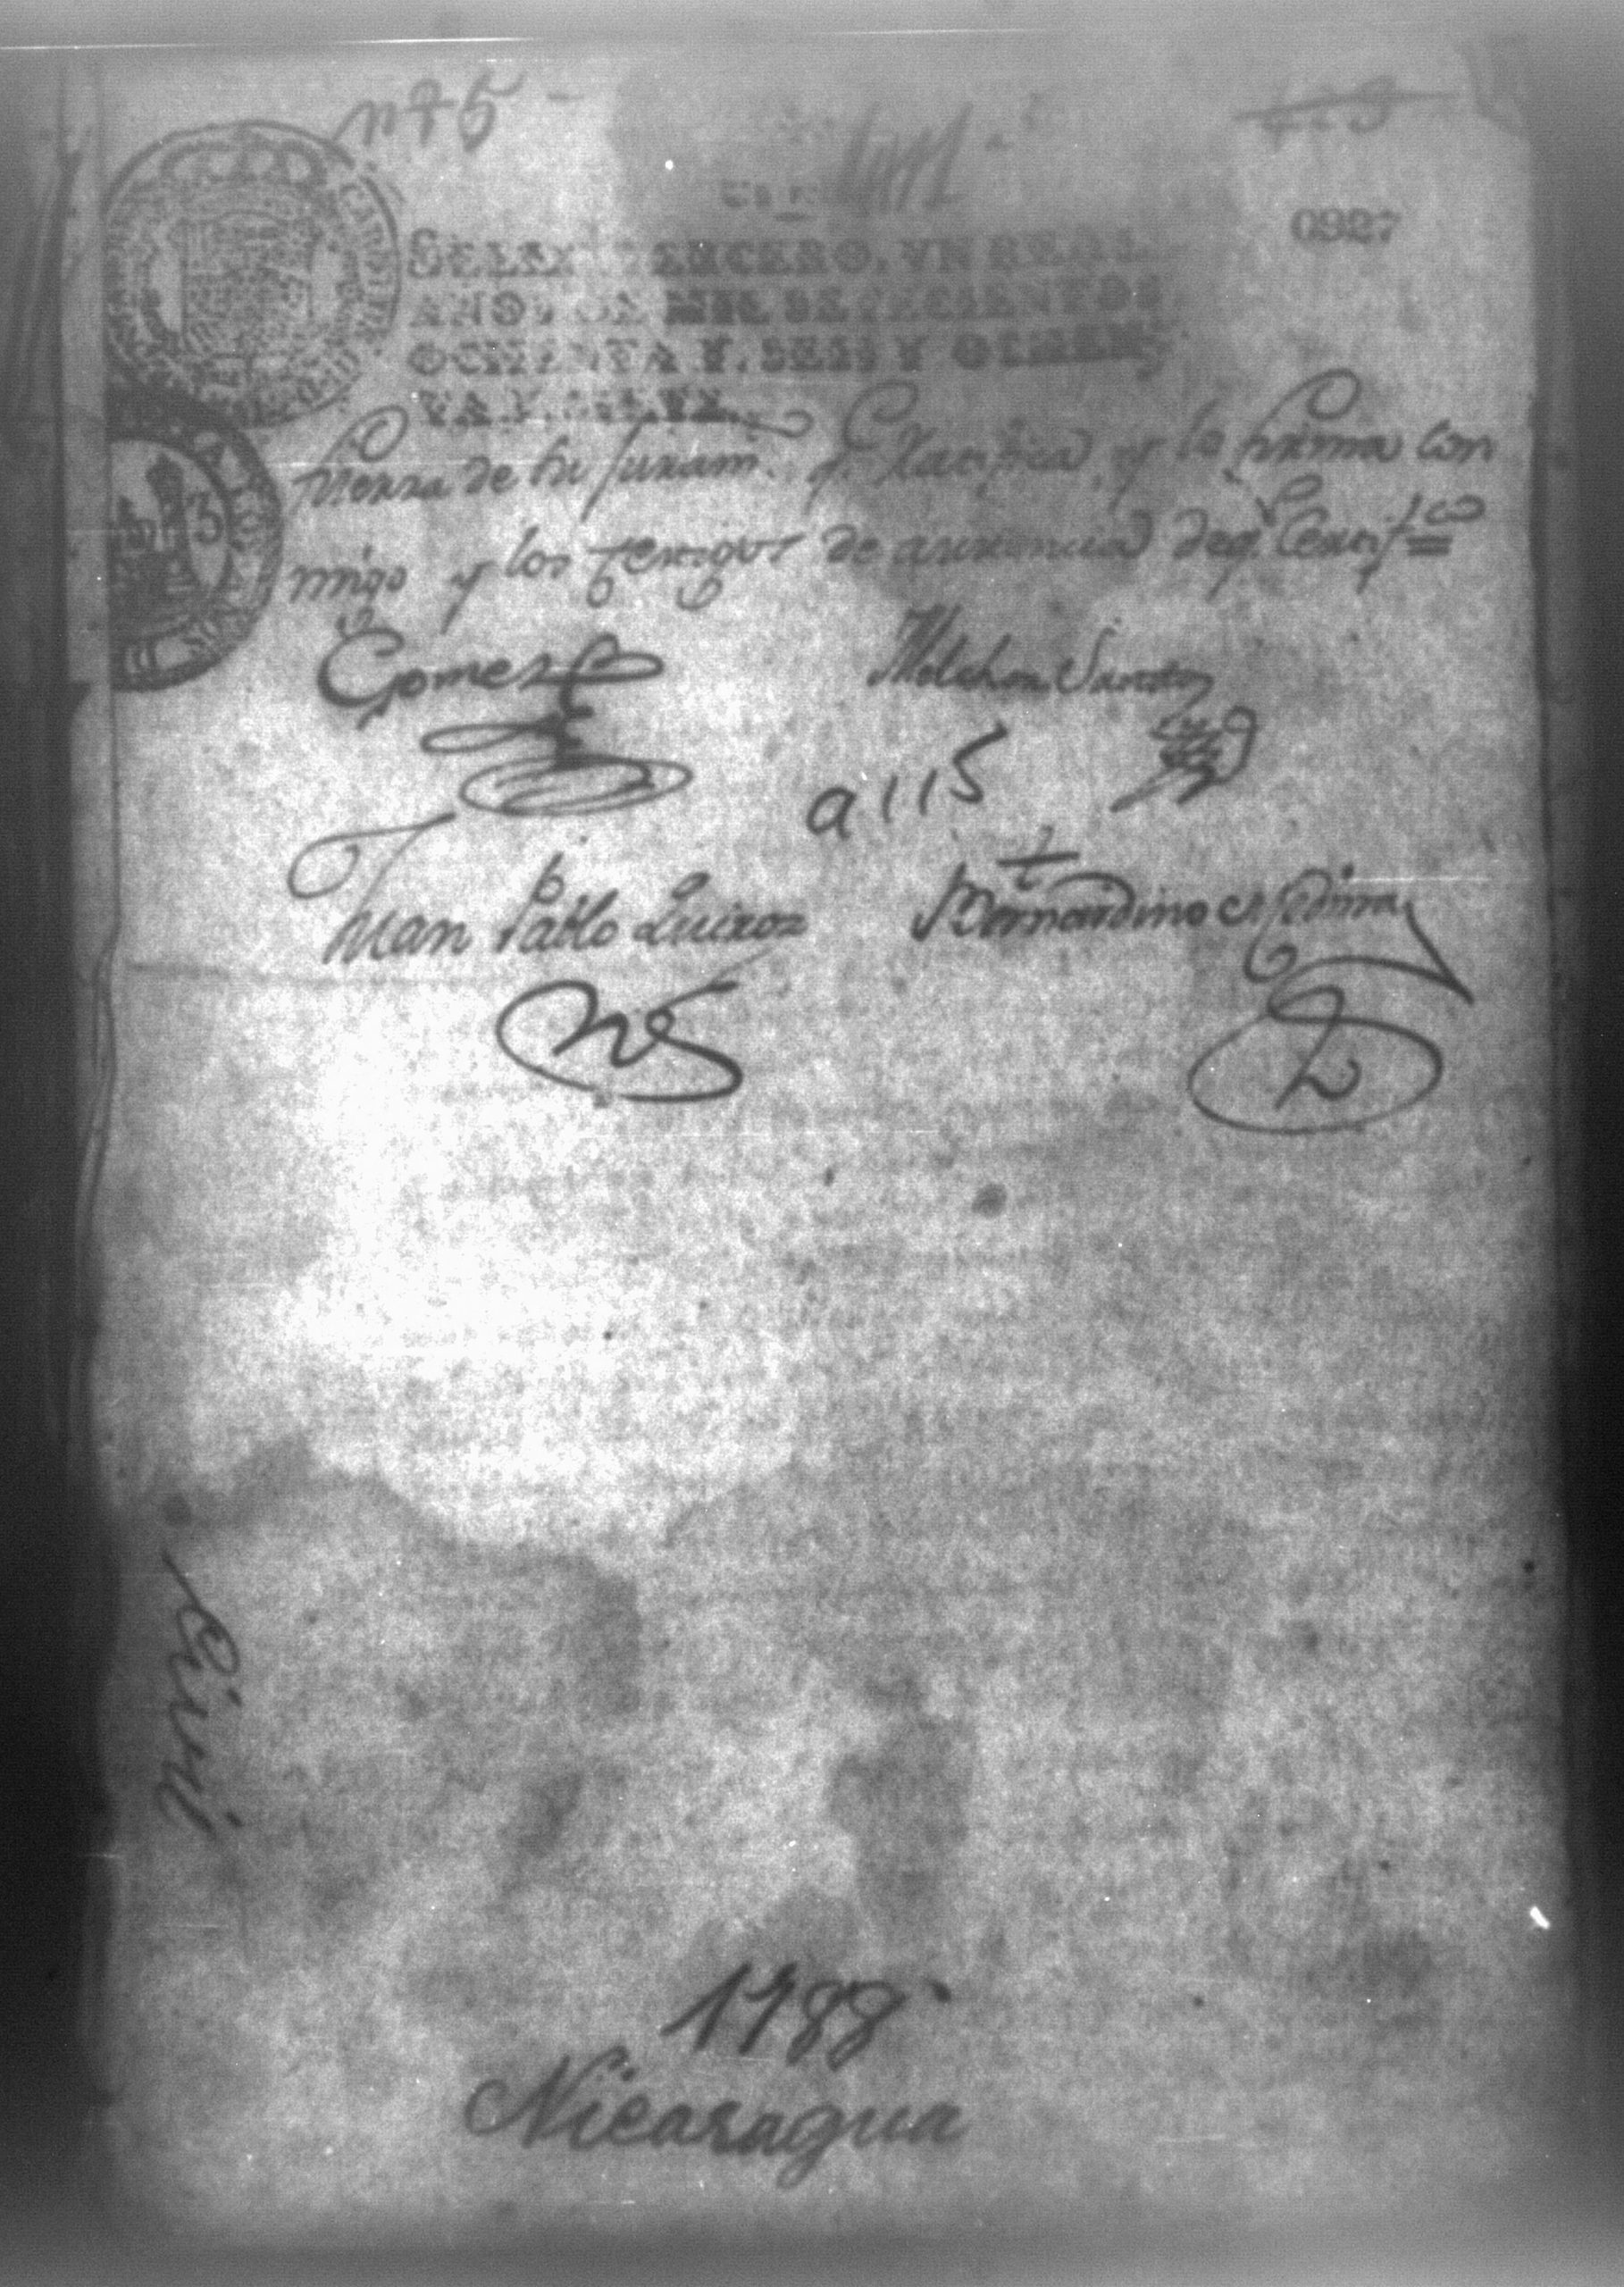 nº 5
0927
SELLO TERCERO, VN REAL,
AÑOS DE MIL SETECIENTOS
OCHENTA Y SEIS Y OCHEN,
TA Y SIETE.
fuerza de su juram.to q.e Ratifica, y lo firma con
migo y los testigos de asistencia de q.e Certif.co =
Gomez
Melchor
a 115
Juan Pablo Quiroz
Bernardino Medina
Civil
1788
Nicaragua